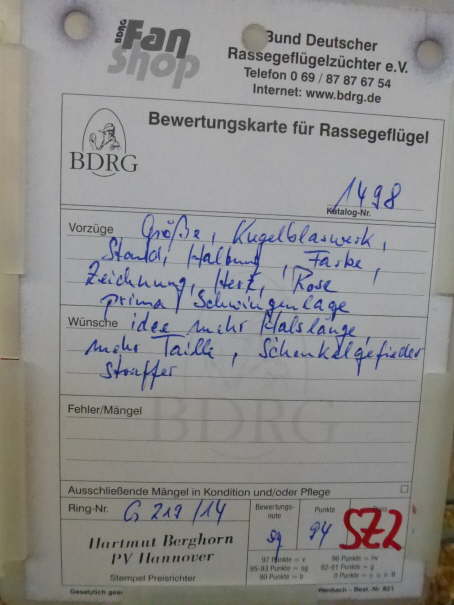 BDRG Fan Shop
Bund Deutscher
Rassegeflügelzüchter e.V.
Telefon 0 69 / 87 87 67 54
Internet: www.bdrg.de
Bewertungskarte für Rassegeflügel
BDRG
1498
Katalog-Nr.
Vorzüge Größe, Kugelblaswerk,
Stand, Haltung, Farbe,
Zeichnung, Herz, Rose
prima Schwingenlage
Wünsche idee mehr Halslänge,
mehr Taille, Schenkelgefieder
straffer
Fehler/Mängel
BDRG
Ausschließende Mängel in Kondition und/oder Pflege
Ring-Nr. G 219/14
Bewertungs-note sg
Punkte 94
SZ2
Hartmut Berghorn
PV Hannover
Stempel Preisrichter
97 Punkte = v
96 Punkte = hv
93-95 Punkte = sg
92-91 Punkte = g
90 Punkte = b
0 Punkte = u
Gesetzlich gesch
Best. Nr. 821